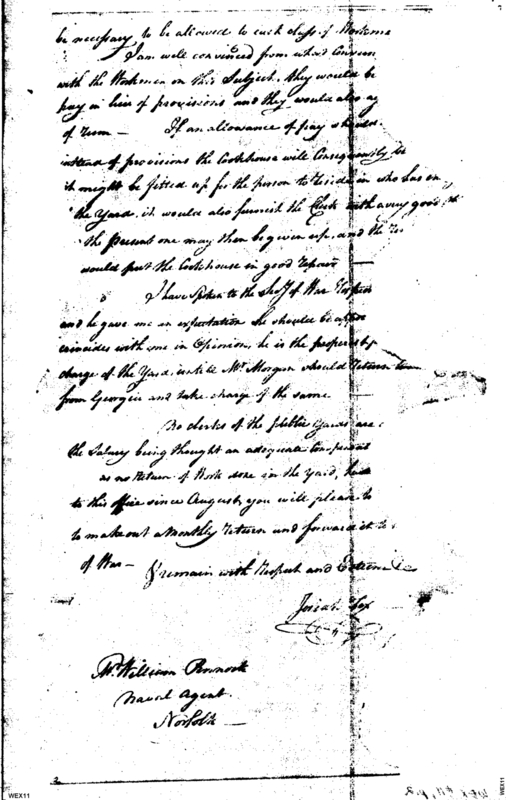 be necessary, to be allowed to each class of Workme
I am well convinced from what Convers
with the Workmen on this Subject. they would be
pay in lieu of provisions and they would also ag
of rum — If an allowance of pay should
instead of provisions the Cookhouse will Consequently be
it might be fitted up for the person to reside in who has
the Yard. it would also furnish the Clerk with a very good
the present one may then be given up, and the
would put the Cookhouse in good repair —
I have Spoken to the Secy of War
and he gave me an expectation he should be
coincides with me in Opinion, he is the properest
charge of the Yard, until Mr Morgan should return
from Georgia and take charge of the same —
No clerks of the public Yards are
the Salary being thought an adequate
as no Return of Work done in the Yard, has
to this Office since August, you will please to
to make out a Monthly return and forward it to
of War — I remain with respect and Esteem &c
Josiah Fox
Mr. William Pennock
Naval Agent.
Norfolk —
2
WEX11
WEX11